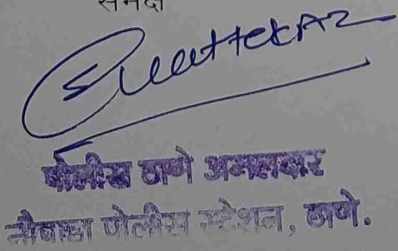 समक्ष
पोलीस ठाणे अमलदार
नौपाडा पोलीस स्टेशन, ठाणे.